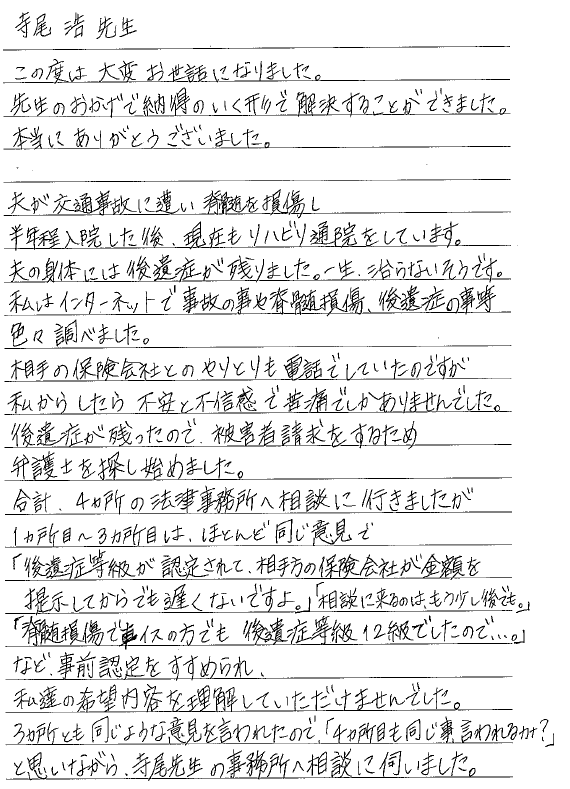 寺尾 浩 先生
この度は 大変 お世話になりました。
先生のおかげで納得のいく形で解決することができました。
本当に ありがとうございました。
夫が交通事故に遭い 脊髄を損傷し
半年程入院した後、現在もリハビリ通院をしています。
夫の身体には後遺症が残りました。一生、治らないそうです。
私はインターネットで事故の事や脊髄損傷、後遺症の事等
色々調べました。
相手の保険会社とのやりとりも電話でしていたのですが
私からしたら 不安と不信感で苦痛でしかありませんでした。
後遺症が残ったので、被害者請求をするため
弁護士を探し始めました。
合計、4ヵ所の法律事務所へ相談に行きましたが
1ヵ所目～3ヵ所目は、ほとんど同じ意見で
「後遺症等級が認定されて、相手方の保険会社が金額を
提示してからでも遅くないですよ。」「相談に来るのは、もう少し後でも。」
「脊髄損傷で車イスの方でも 後遺症等級12級でしたので…。」
など、事前認定をすすめられ、
私達の希望内容を理解していただけませんでした。
3ヵ所とも同じような意見を言われたので、「4ヵ所目も同じ事、言われるかな?」
と思いながら、寺尾先生の事務所へ相談に伺いました。